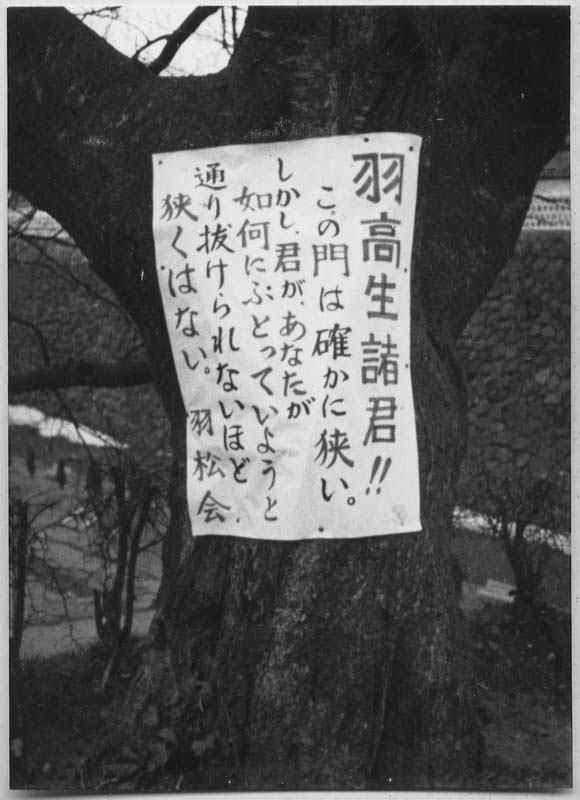 羽高生諸君!!
この門は確かに狭い。
しかし、君が、あなたが
如何にぶとっていようと
通り抜けられないほど
狭くはない。 羽松会